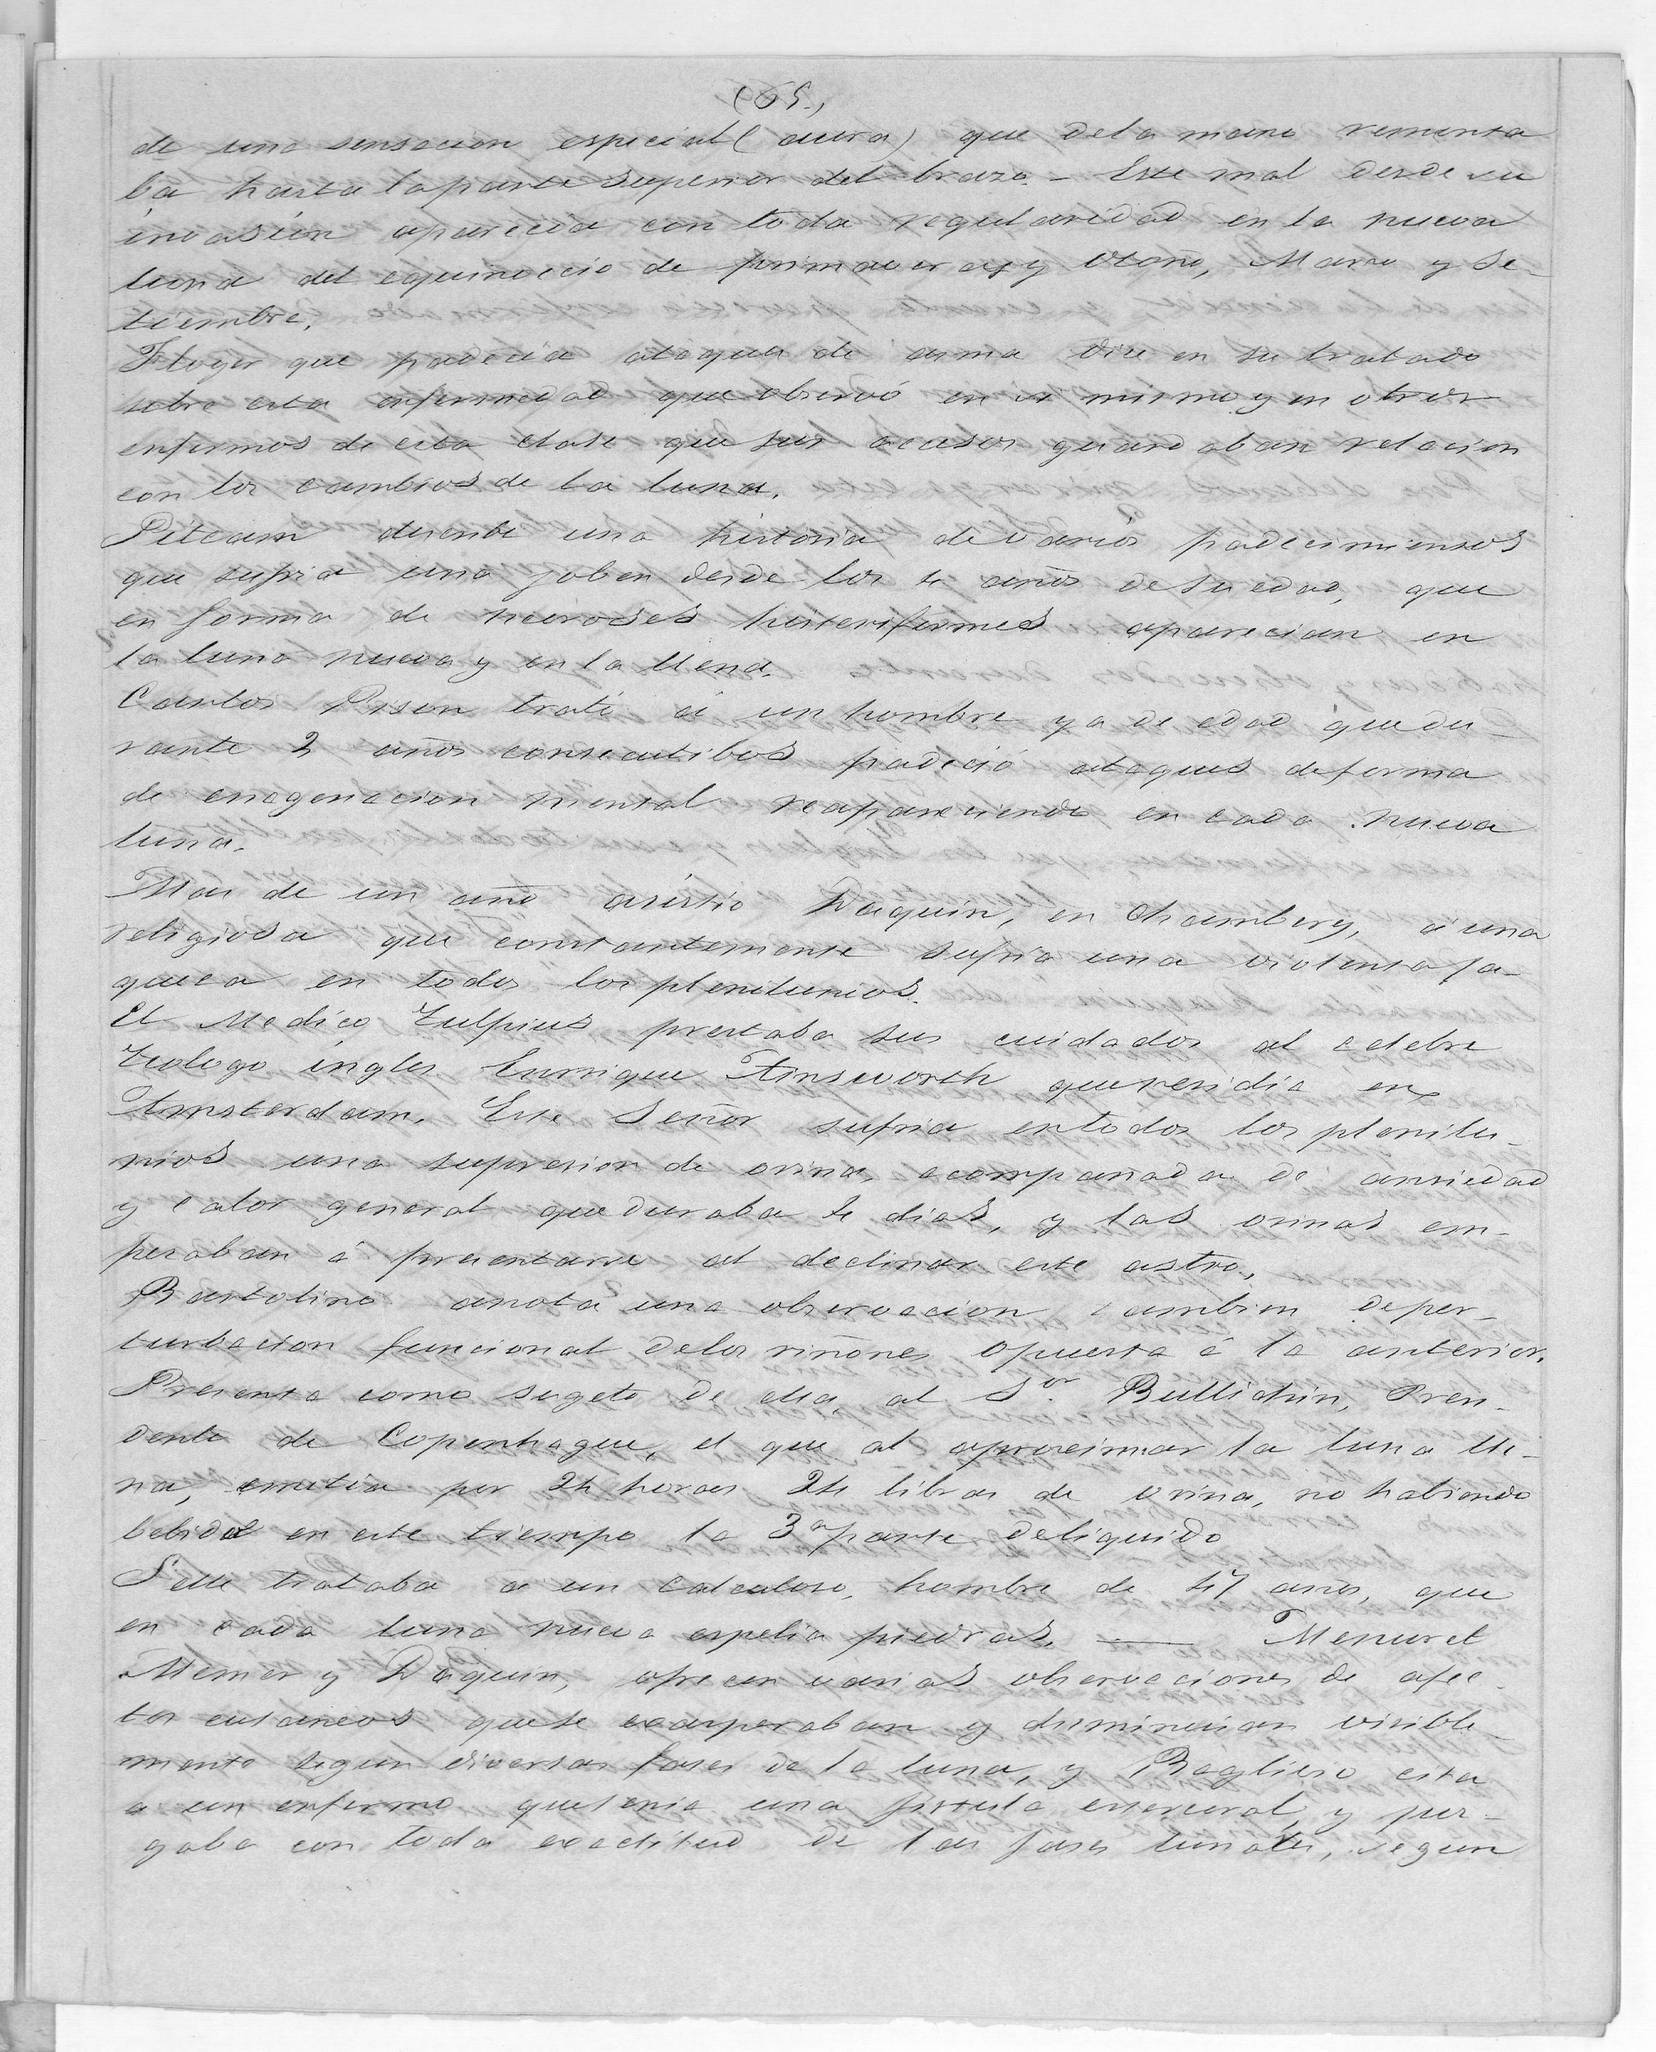 (65.)
de una sensacion especial (aura) que dela mano remonta
ba hasta laparte superior del brazo. - Este mal desde su
invasion aparecia con toda regularidad en la nueva
luna del equinoccio de primaveras y Otoño, Marzo y Se-
tiembre.
Floyer que padecia ataques de asma dice en su tratado
sobre esta enfermedad que observó en si mismo y en otros
enfermos de esta clase que sus accesos guardaban relacion
con los cambios de la luna.
Pitcarn describe una historia de varios padecimientos
que sufria una joben desde los 4 años de su edad, que
en forma de neuroses histeriformes aparecian en
la luna nueva y en la llena.
Carlos Pison trató á un hombre ya de edad que du-
rante 2 años consecutibos padeció ataques deforma
de enagenacion mental reapareciendo en cada nueva
luna.
Mas de un año asistio Daquin, en Chambery, á una
religiosa que constantemente sufria una violenta ja-
queca en todos los plenilunios.
El Medico Tulpius prestaba sus cuidados al celebre
teologo ingles Enrrique Ainsworth que residia en
Amsterdam. Este Señor sufria en todos los plenilu-
nios una supresion de orina, acompañada de ansiedad
y calor general que duraba 4 dias, y las orinas em-
pezaban á presentarse al declinar este astro.
Bartolino anota una observacion tambien de per-
turbacion funcional delos riñones opuesta á la anterior.
Presenta como sugeto de ella al Sor. Bullichin, Presi-
dente de Copenhague, el que al aproximar la luna lle-
na, emitia por 24 horas 24 libras de orina, no habiendo
bebido en este tiempo la 3a parte deliquido
Selle trataba a un calculoso, hombre de 47 años, que
en cada luna nueva espelia piedras. — Menuret
Memer y Daquin, ofrecen varias observaciones de afec-
tos cutaneos que se exasperaban y disminuian visible-
mente segun diversas fases de la luna, y Baglivio cita
a un enfermo que tenia una fistula estercoral, y pur-
gaba con toda exactitud de las fases lunales, segun